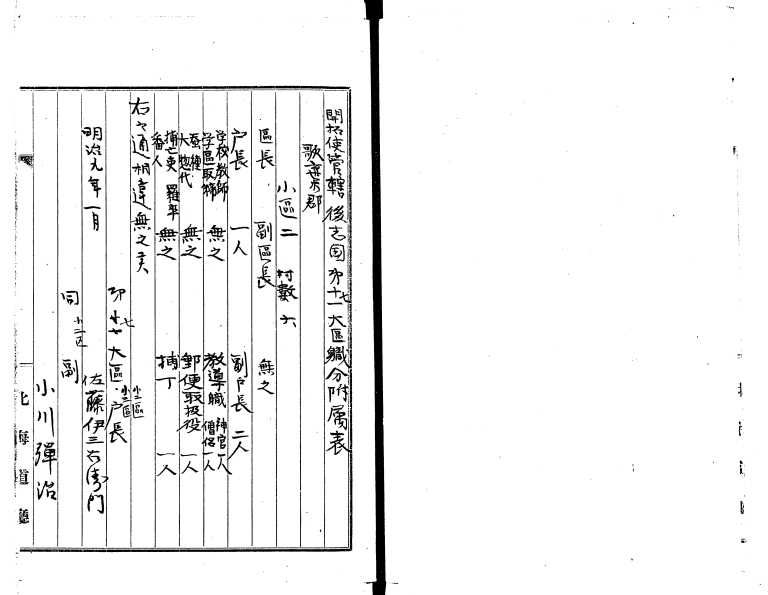 開拓使管轄後志国第十七大區職分附属表
歌棄郡
小區二 村數六
區長 副區長 無之
戸長 一人 副戸長 二人
学校教師 学區取締 無之 教導職 神官一人 僧侶一人
蚕種大惣代 無之 郵便取扱役 一人
捕亡吏 羅卒 番人 無之 捕丁 一人
右之通相違無之候
第十七大區 小一區 小二區 戸長
明治九年一月 佐藤伊三右衛門
同 小二区 副
小川彈治
北海道廳